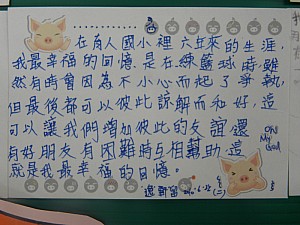 在育人國小裡六年來的生涯,
我最幸福的回憶是在練籃球時雖
然有時會因為不小心而起了爭執
但最後都可以彼此諒解而和好,這
可以讓我們增加彼此的友誼還
有好朋友有困難時互相幫助,這
就是我最幸福的回憶。
Oh!
My
God